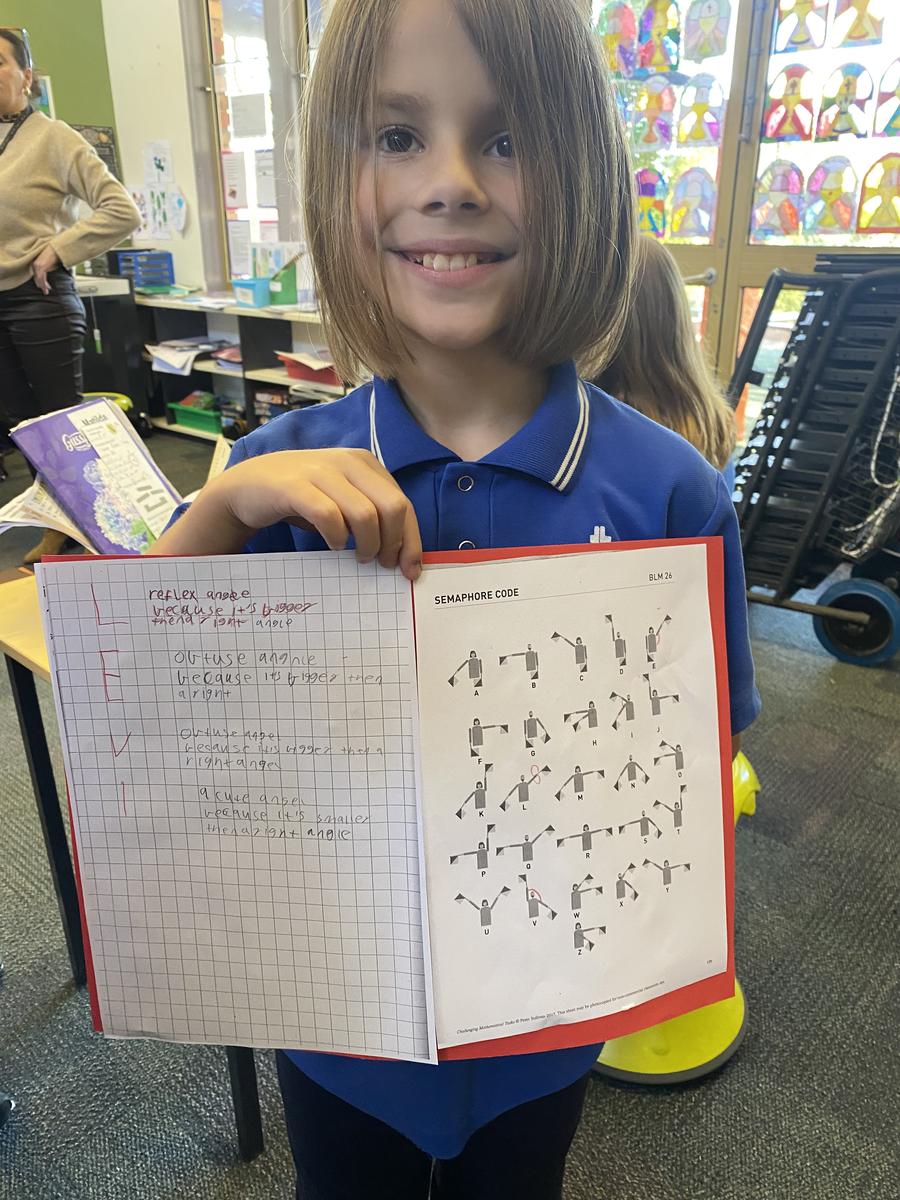 Matilda
L reflex angle
because it's bigger
then a right angle
E Obtuse angnle
because it's bigger then
a right
V Obtuse angel
because it's bigger then a
right angel
I acute angel
because it's smaller
then a right angle
SEMAPHORE CODE
BLM 26
A B C D E
F G H I J
K L M N O
P Q R S T
U V W X Y
Z
Challenging Mathematical Tasks © Peter Sullivan 2017. This sheet may be photocopied for non-commercial classroom use.